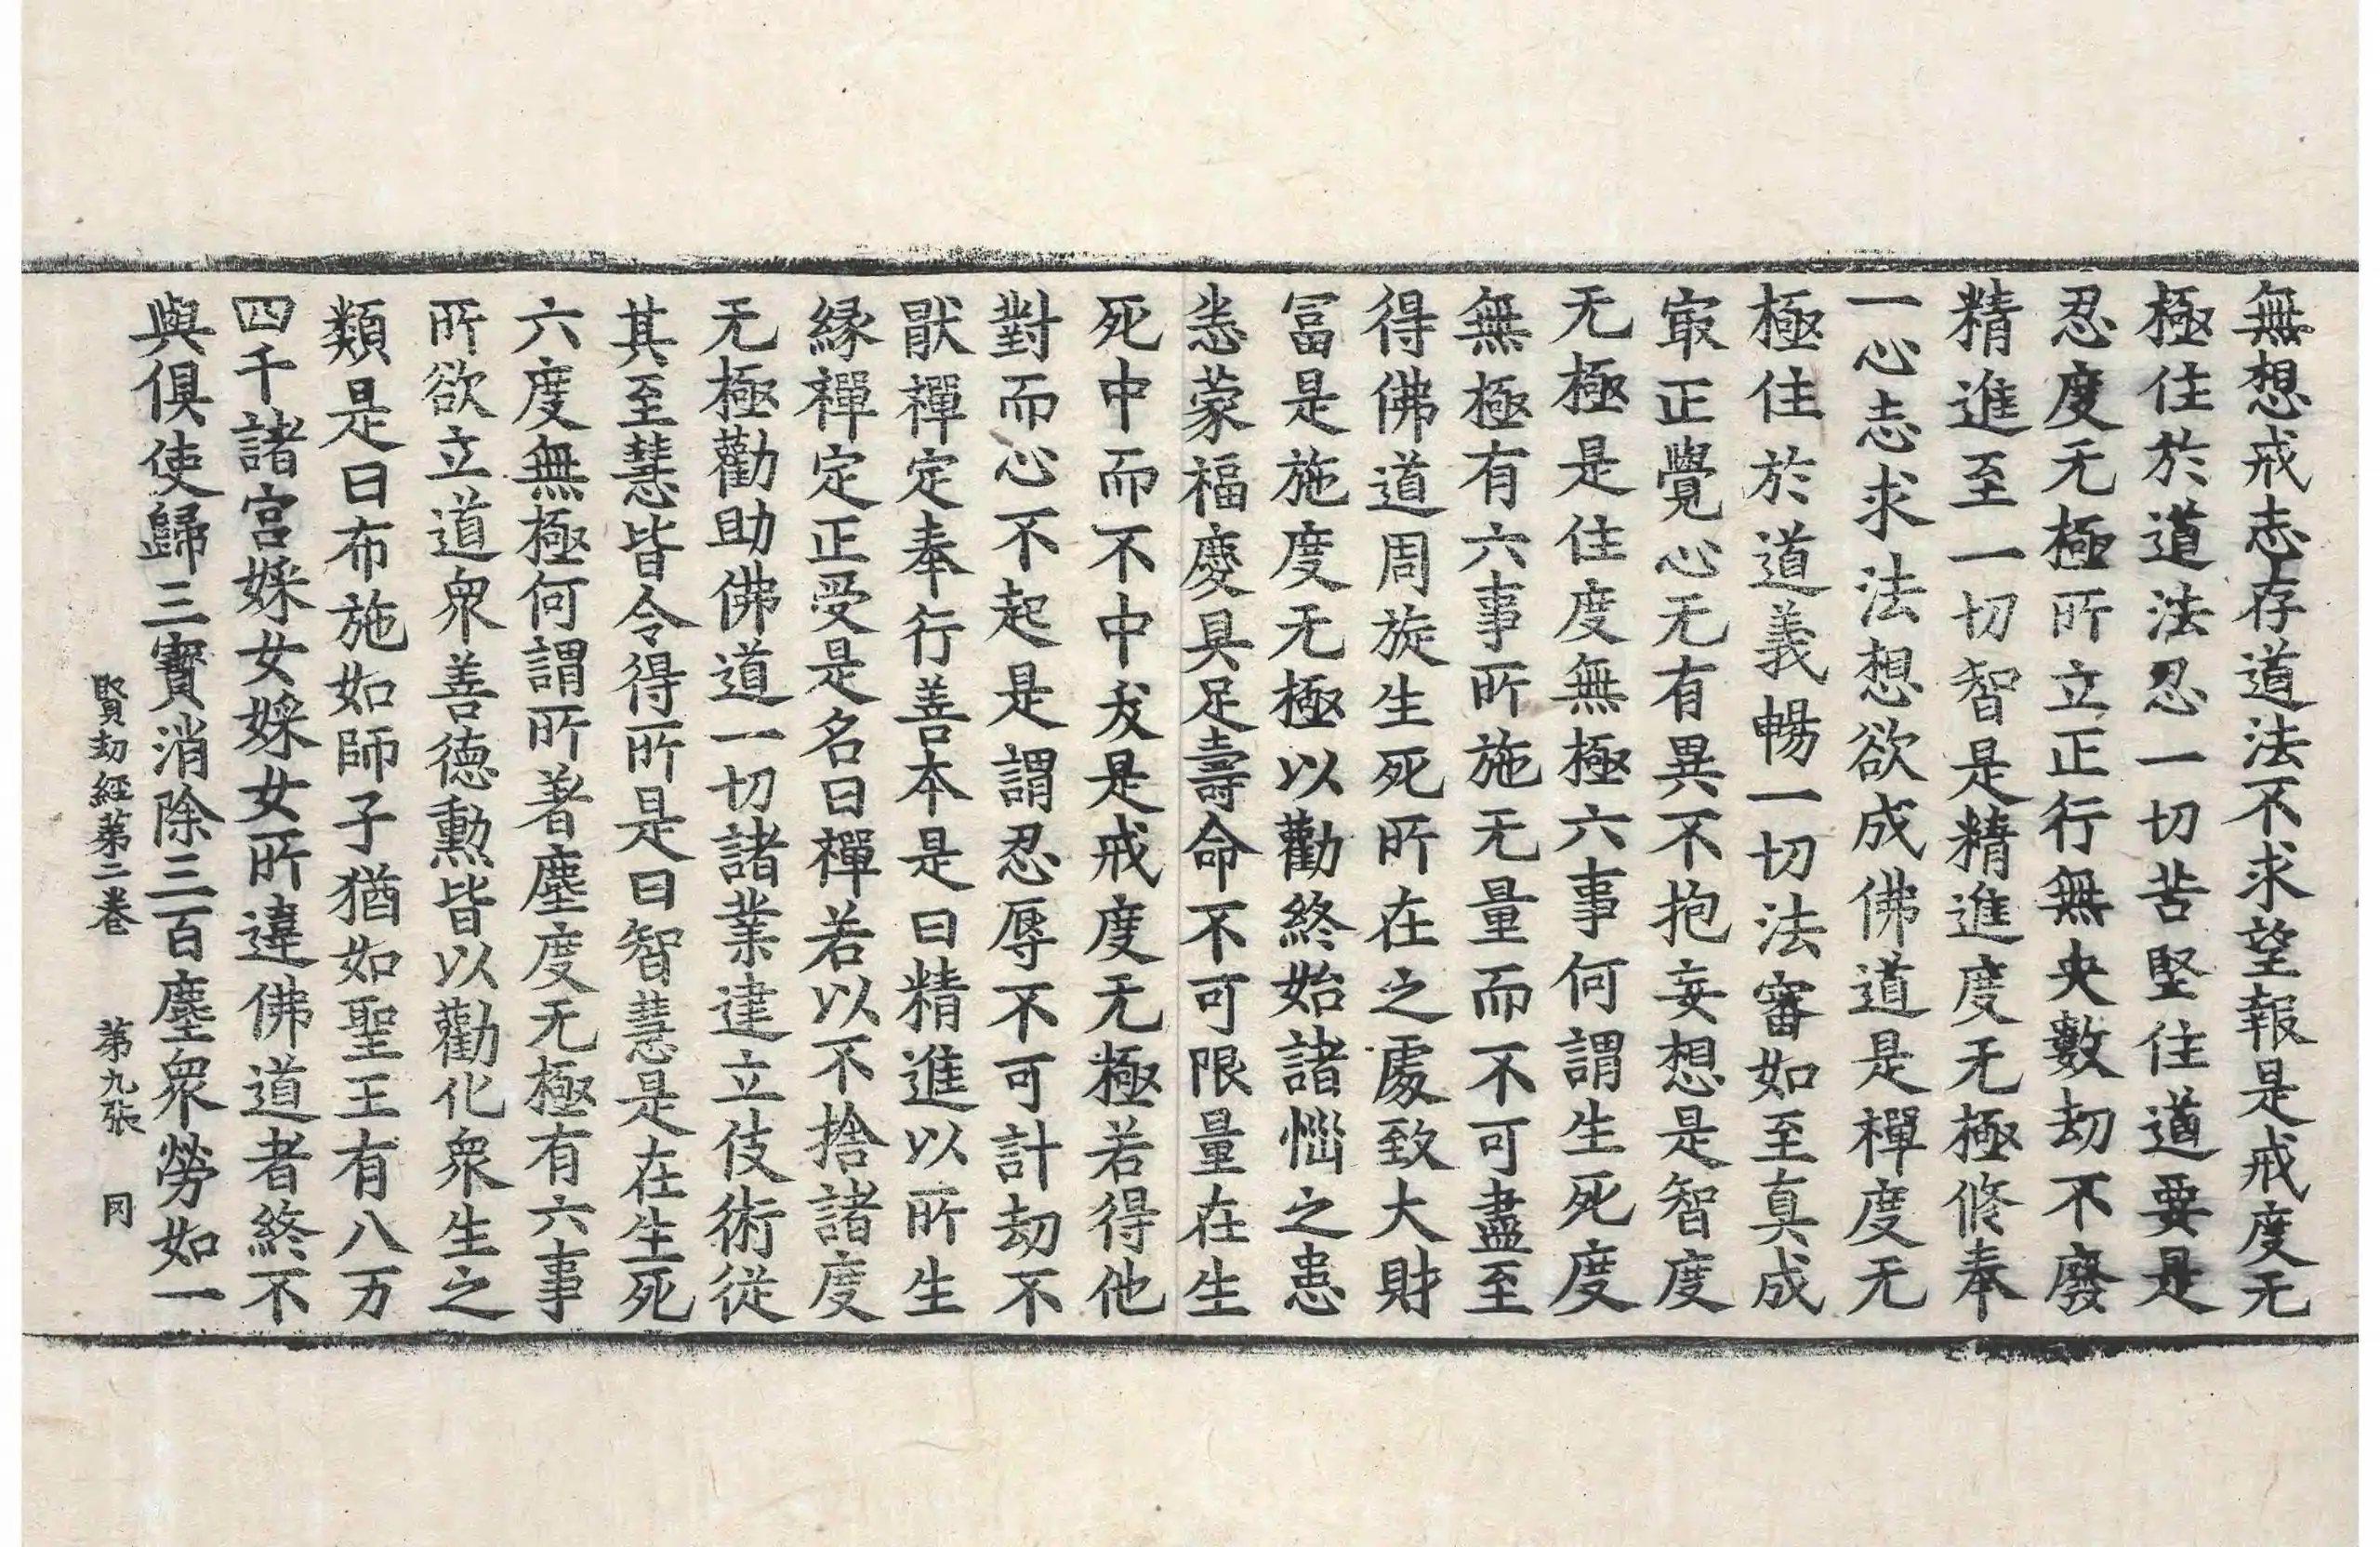 無想戒志存道法不求望報是戒度无
極住於道法忍一切苦堅住道要是
忍度无極所立正行無央數劫不廢
精進至一切智是精進度无極修奉
一心志求法想欲成佛道是禪度无
極住於道義暢一切法審如至真成
㝡正覺心无有異不抱妄想是智度
无極是住度無極六事何謂生死度
無極有六事所施无量而不可盡至
得佛道周旋生死所在之處致大財
冨是施度无極以勸終始諸惱之患
恙蒙福慶具足壽命不可限量在生
死中而不中犮是戒度无極若得他
對而心不起是謂忍辱不可計劫不
猒禪定奉行善本是曰精進以所生
縁禪定正受是名曰禪若以不捨諸度
无極勸助佛道一切諸業建立伎術從
其至慧皆令得所是曰智慧是在生死
六度無極何謂所著塵度无極有六事
所欲立道衆善德勲皆以勸化衆生之
類是曰布施如師子猶如聖王有八万
四千諸宮婇女婇女所違佛道者終不
與俱使歸三寶消除三百塵衆勞如一
賢劫經第二卷 第九張 同